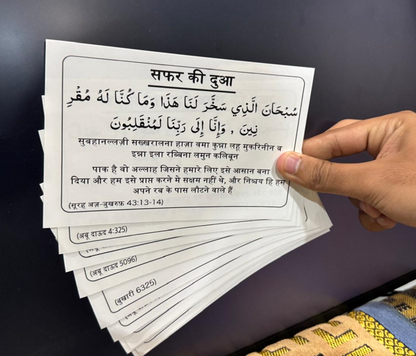 सफर की दुआ
سُبْحَانَ الَّذِي سَخَّرَ لَنَا هَذَا وَمَا كُنَّا لَهُ مُقْرِ
نِينَ , وَإِنَّا إِلَى رَبِّنَا لَمُنْقَلِبُونَ
सुबहानल्लज़ी सख्खरालना हाज़ा वमा कुन्ना लहू मुकरिनीन व
इन्ना इला रब्बिना लमुन कलिबून
पाक है वो अल्लाह जिसने हमारे लिए इसे आसान बना
दिया और हम इसे प्राप्त करने में सक्षम नहीं थे, और निश्चय हि हम
अपने रब के पास लौटने वाले हैं
(सूरह अज़-ज़ुखरुफ़ 43:13-14)
(अबू दाऊद 4:325)
(अबू दाऊद 5096)
(बुखारी 6325)